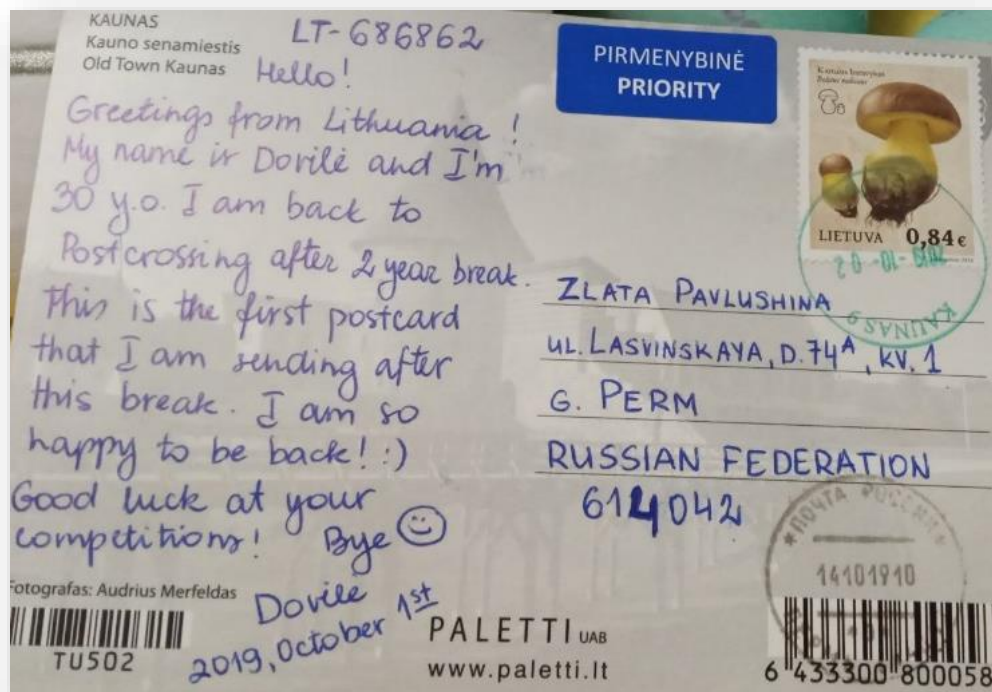 KAUNAS
Kauno senamiestis
Old Town Kaunas
LT-686862
Hello!
Greetings from Lithuania!
My name is Dovilė and I'm
30 y.o. I am back to
Postcrossing after 2 year break.
This is the first postcard
that I am sending after
this break. I am so
happy to be back! :)
Good luck at your
competitions! Bye
Dovilė
2019, October 1st
Fotografas: Audrius Merfeldas
TU502
PALETTI UAB
www.paletti.lt
PIRMENYBINĖ
PRIORITY
LIETUVA 0,84€
KAUNAS 9
ZLATA PAVLUSHINA
UL. LASVINSKAYA, D. 74A, KV. 1
G. PERM
RUSSIAN FEDERATION
614042
ПОЧТА РОССИИ
14101910
6 433300 800058